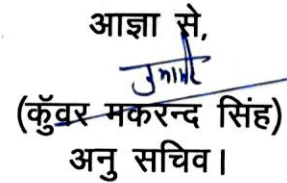 आज्ञा से,
(कुँवर मकरन्द सिंह)
अनु सचिव।